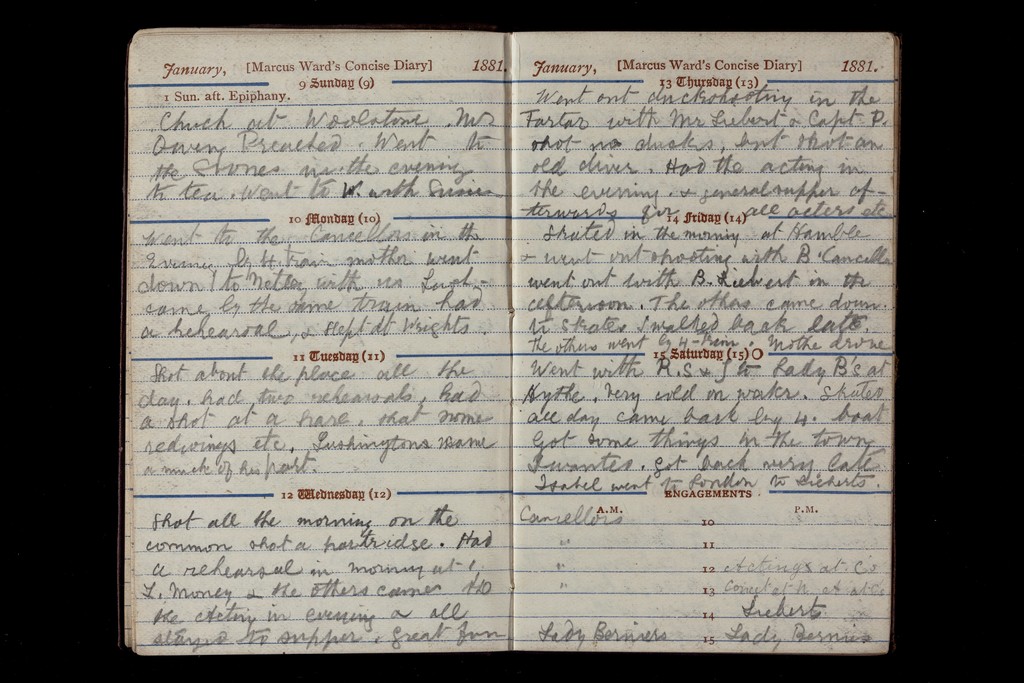 January, [Marcus Ward's Concise Diary] 1881.
9 Sunday (9)
1 Sun. aft. Epiphany.
Chuch at Woolstone Mr
Owen Preached. Went to
the Stones in the evening
to tea. Went to W. with Susie
10 Monday (10)
Went to the Cancellors in the
Evening by 4 train mother went
down to Netley with us
came by the same train had
a rehearsal, & slept at Wrights.
11 Tuesday (11)
Shot about the place all the
day. had two rehearsals, had
a shot at a hare, shot some
redwings etc. Lushingtons
a much of his part.
12 Wednesday (12)
Shot all the morning on the
common shot a partridge. Had
a rehearsal in morning at 1,
L. Money & the others came
the Acting in evening & all
stayed to supper, great fun
January, [Marcus Ward's Concise Diary] 1881.
13 Thursday (13)
Went out duckshooting in the
Tartar with Mr Siebert & Capt P.
shot no ducks, but shot an
old diver. Had the acting in
the evening. & general supper af-
terwards for all acters etc
14 Friday (14)
Skated in the morning at Hamble
& went out shooting with B Cancello
went out with B. Siebert in the
afternoon. The others came down
to skate. I walked back late.
The others went by 4-train. Mothe drove
15 Saturday (15)
Went with R.S & J to Lady B's at
Hythe. Very cold on water. Skated
all day came back by 4. boat
Got some things in the town
I wanted. Got back very late
Isabel went to London to Sieberts.
ENGAGEMENTS.
A.M. P.M.
Cancellors 10
" 11
" 12 Actings at C's
13 Concert at N. A at C's
14 Siebert
Lady Berniers 15 Lady Bernies